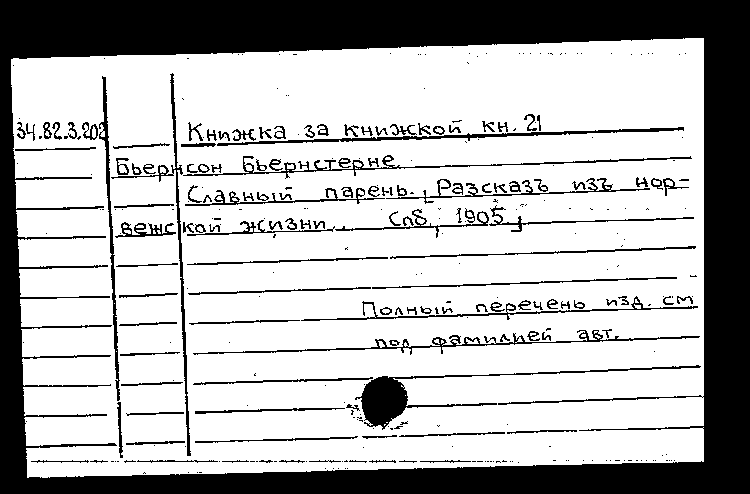 34.82.3.202 Книжка за книжкой, кн. 21
Бьернсон Бьернстерне.
Славный парень. [Разсказъ изъ нор-
вежской жизни. Спб, 1905]
Полный перечень изд. см
под фамилией авт.